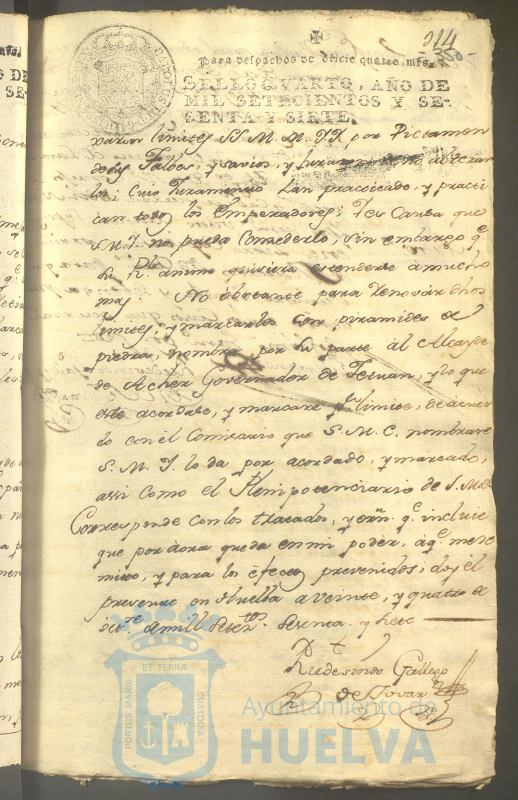 314
350
Para despachos de oficio quatro mrs.
SELLO QVARTO, AÑO DE
MIL SETECIENTOS Y SE-
SENTA Y SIETE.
varon limites SS. M. M. II. por Dictamen
de sus Talbes, y savios, y no alteran
los: Cuio Juramento han practicado, y practi
can todos los Emperadores; Es Causa que
S.M.I. no pueda Concederlo, sin embargo q.e
su R.l animo quisiera estenderse a mucho
mas: No obstante para Renovar dhos
limites, y marcarlos con piramides de
piedra, nombra por su parte al Alcayde
de Acher Governador de Tetuan, y lo que
este acordase, y marcare p.r limite, de acuer
do con el Comisario que S. M. C. nombrare
S. M. I. lo da por acordado, y marcado,
assi como el Plenipotenciario de S.M.C.
Corresponde con los tratados, y orn. q.e incluie
que por aora queda en mi poder, a q.e me re
mito, y para los efectos prevenidos, doy el
presente en Huelba a veinte, y quatro de
de mill Setez.tos Sesenta, y Siete
Rudesindo Gallego
de Tovar
ET TERRÆ
PORTUS MARIS
CUSTODIA
Ayuntamiento de
HUELVA